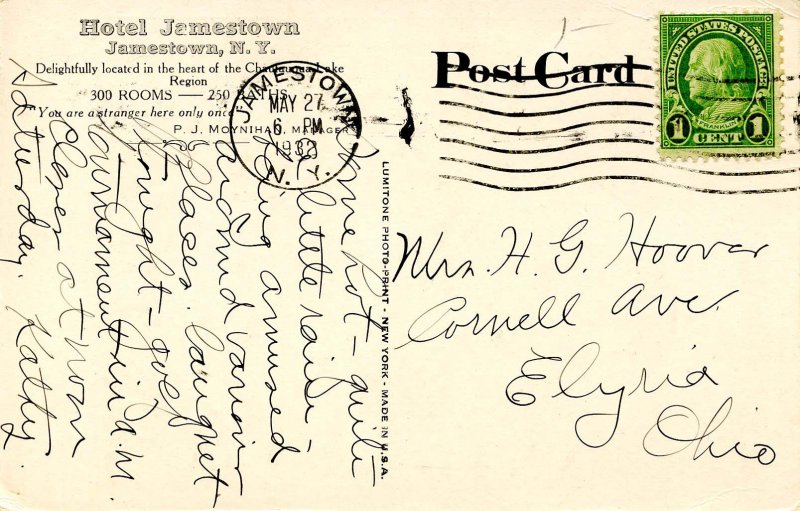 Hotel Jamestown
Jamestown, N. Y.
Delightfully located in the heart of the Chautauqua Lake
Region
300 ROOMS — 250 BATHS
You are a stranger here only once
P. J. MOYNIHAN, MANAGER
JAMESTOWN
MAY 27
6 PM
193
N.Y.
Post Card
UNITED STATES POSTAGE
FRANKLIN
1 CENT 1
LUMITONE PHOTO-PRINT - NEW YORK - MADE IN U.S.A.
hot — quite
little rain.
Being amused
around various
places. Banquet
tonight — golf
tournament in a.m.
Closes at noon
Saturday. Kathy.
Mrs. H. G. Hoover
Cornell Ave.
Elyria
Ohio